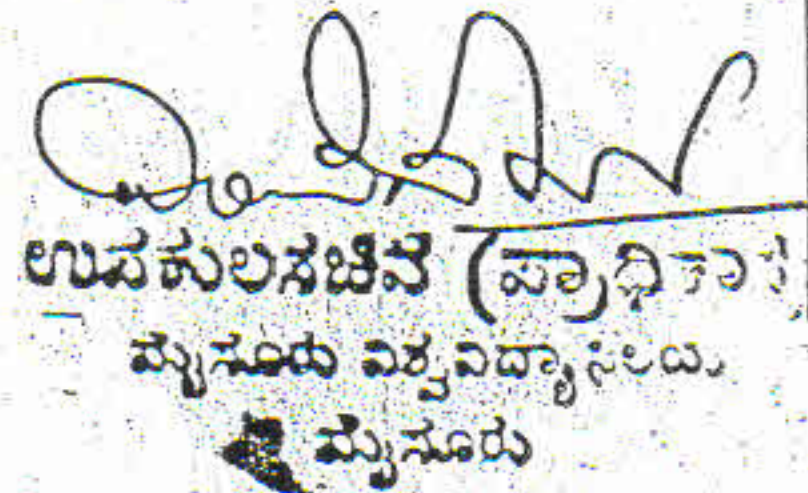 ಉಪಕುಲಸಚಿವೆ
ಮೈಸೂರು ವಿಶ್ವವಿದ್ಯಾನಿಲಯ
ಮೈಸೂರು